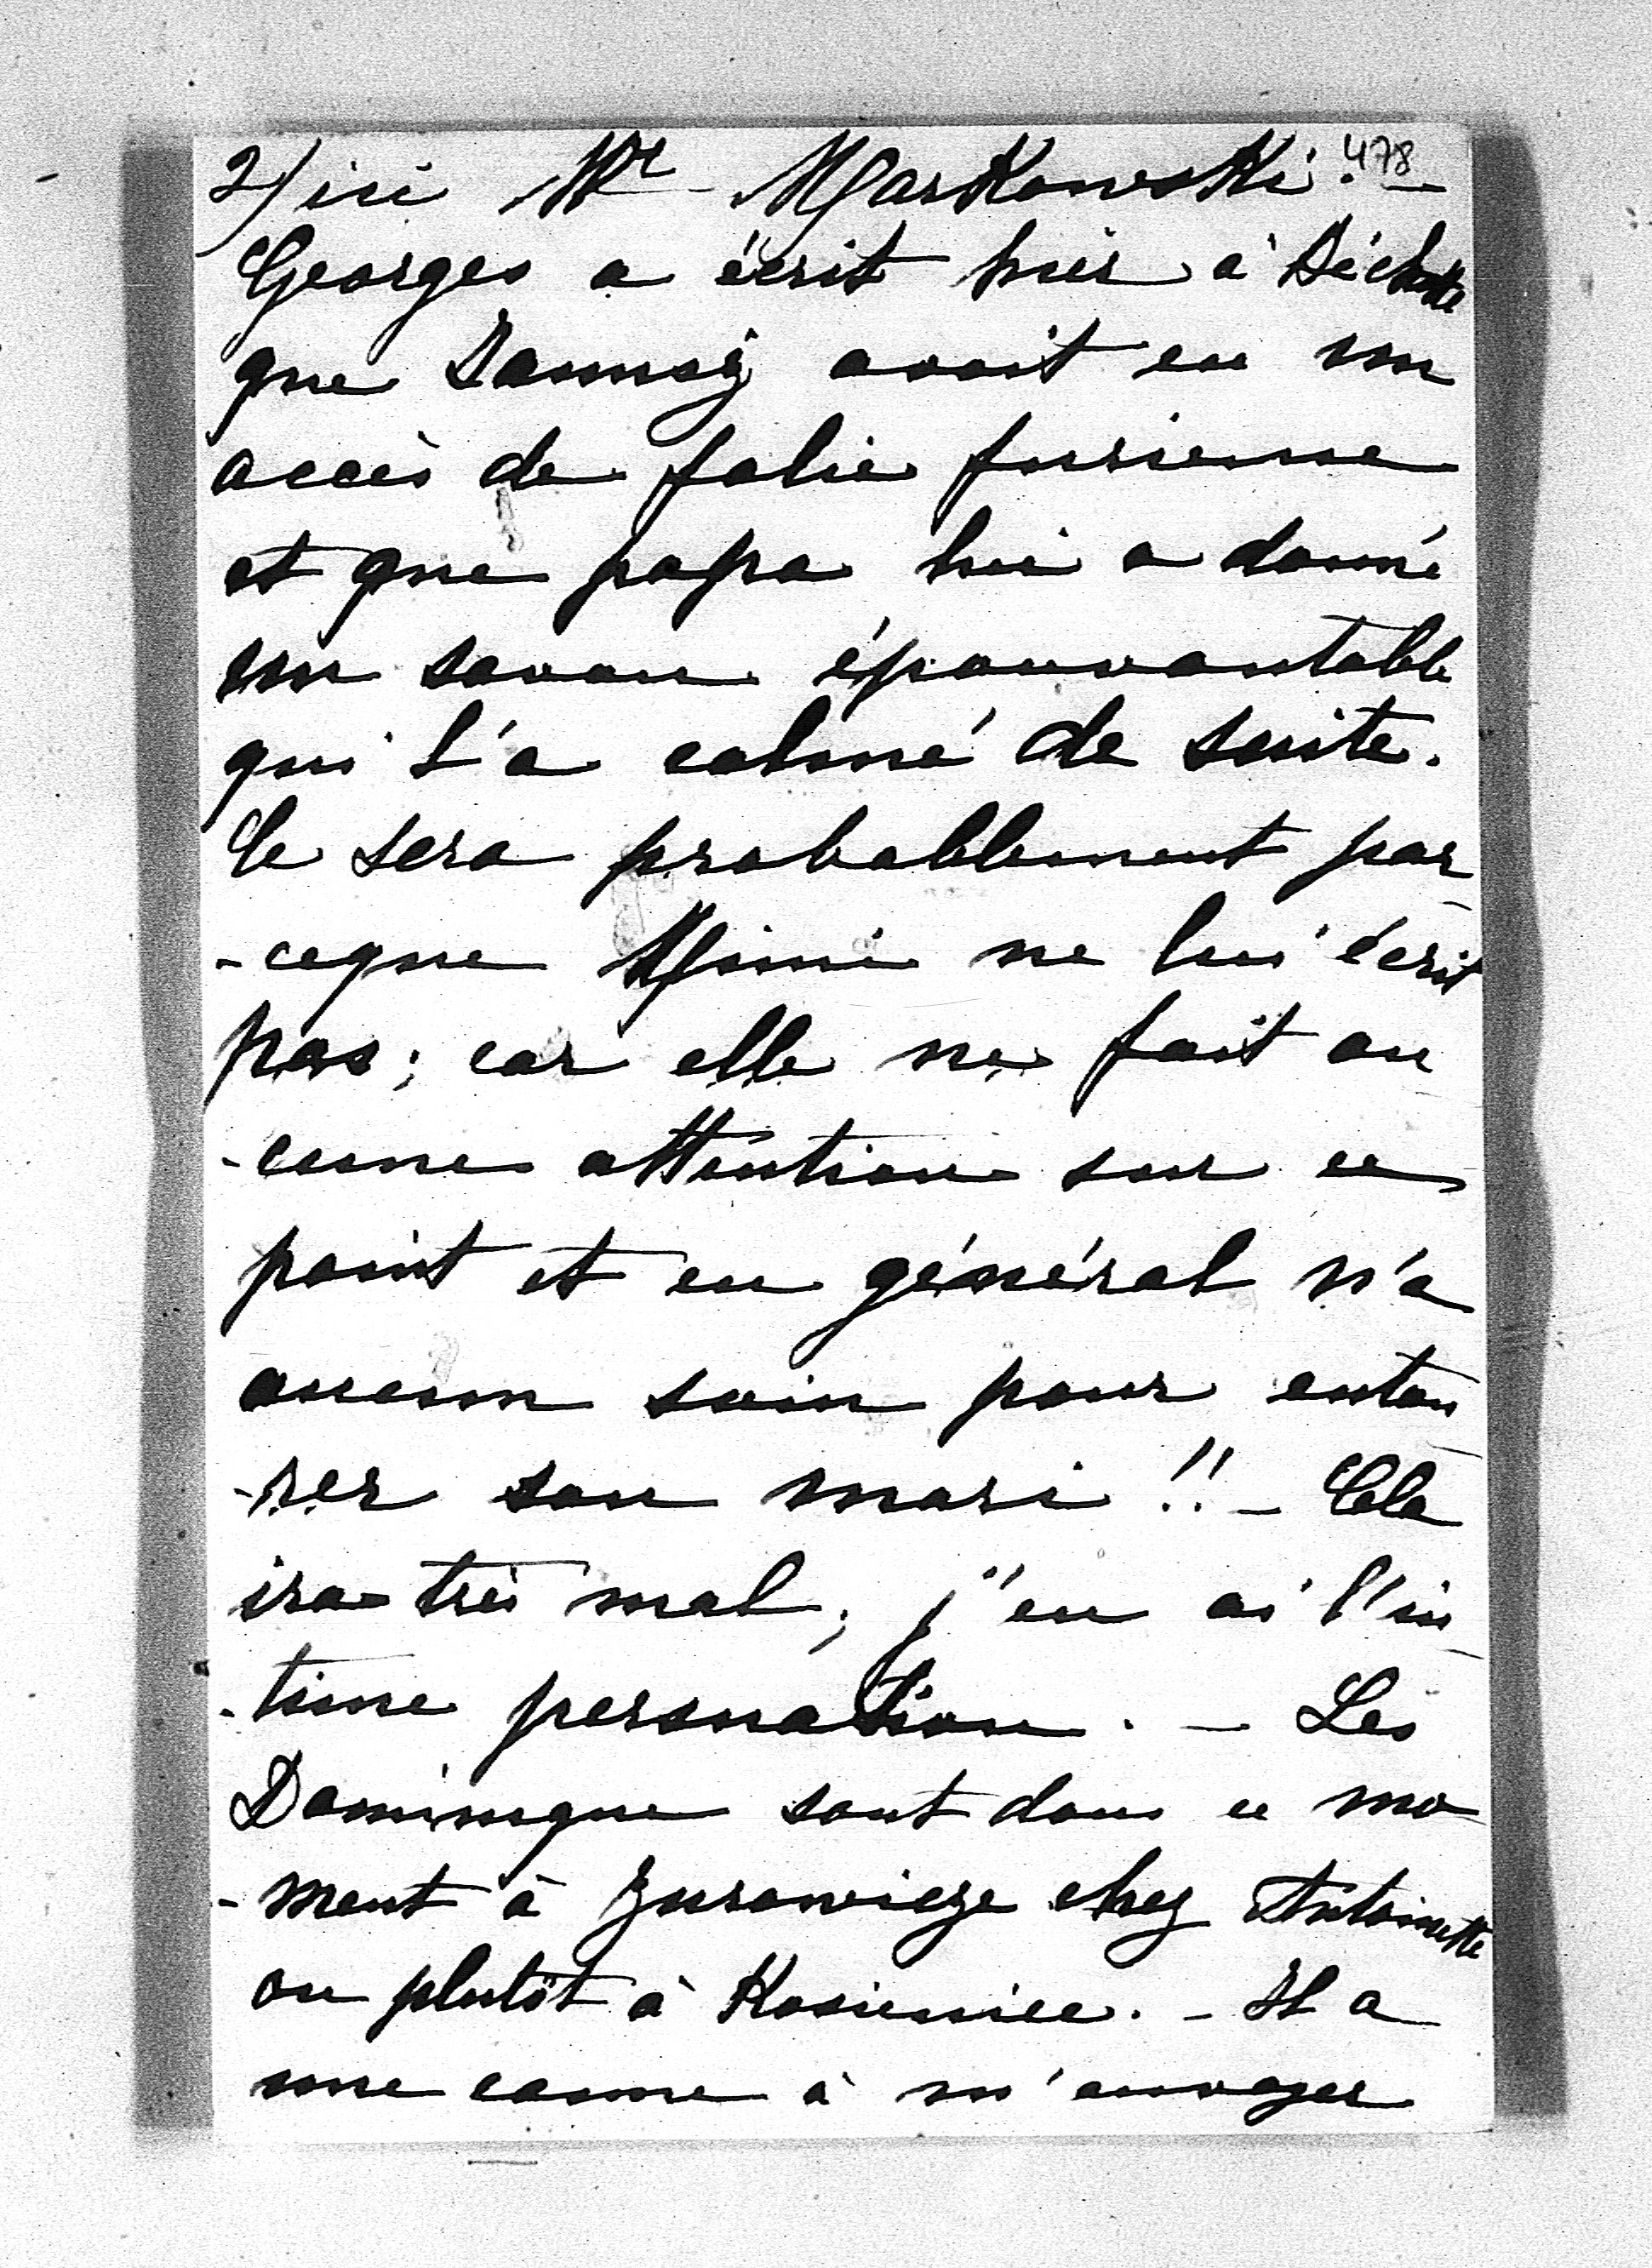 478
2/ ici Mr Markowski. –
Georges a écrit hier à
que avait eu un
accès de folie furieuse
et que papa lui a donné
un savon épouvantable
qui l'a calmé de suite.
Ce sera probablement par
-ceque Mimi ne lui écrit
pas; car elle ne fait au
-cune attention sur ce
point et en général n'a
aucun soin pour entou
-rer son mari!! – Cela
ira très mal; j'en ai l'in
-time persuation. – Les
Dominique sont dans ce mo
-ment à Zurowicze chez Antoinette
ou plutôt à Kosienice. – Il a
une canne à m'envoyer